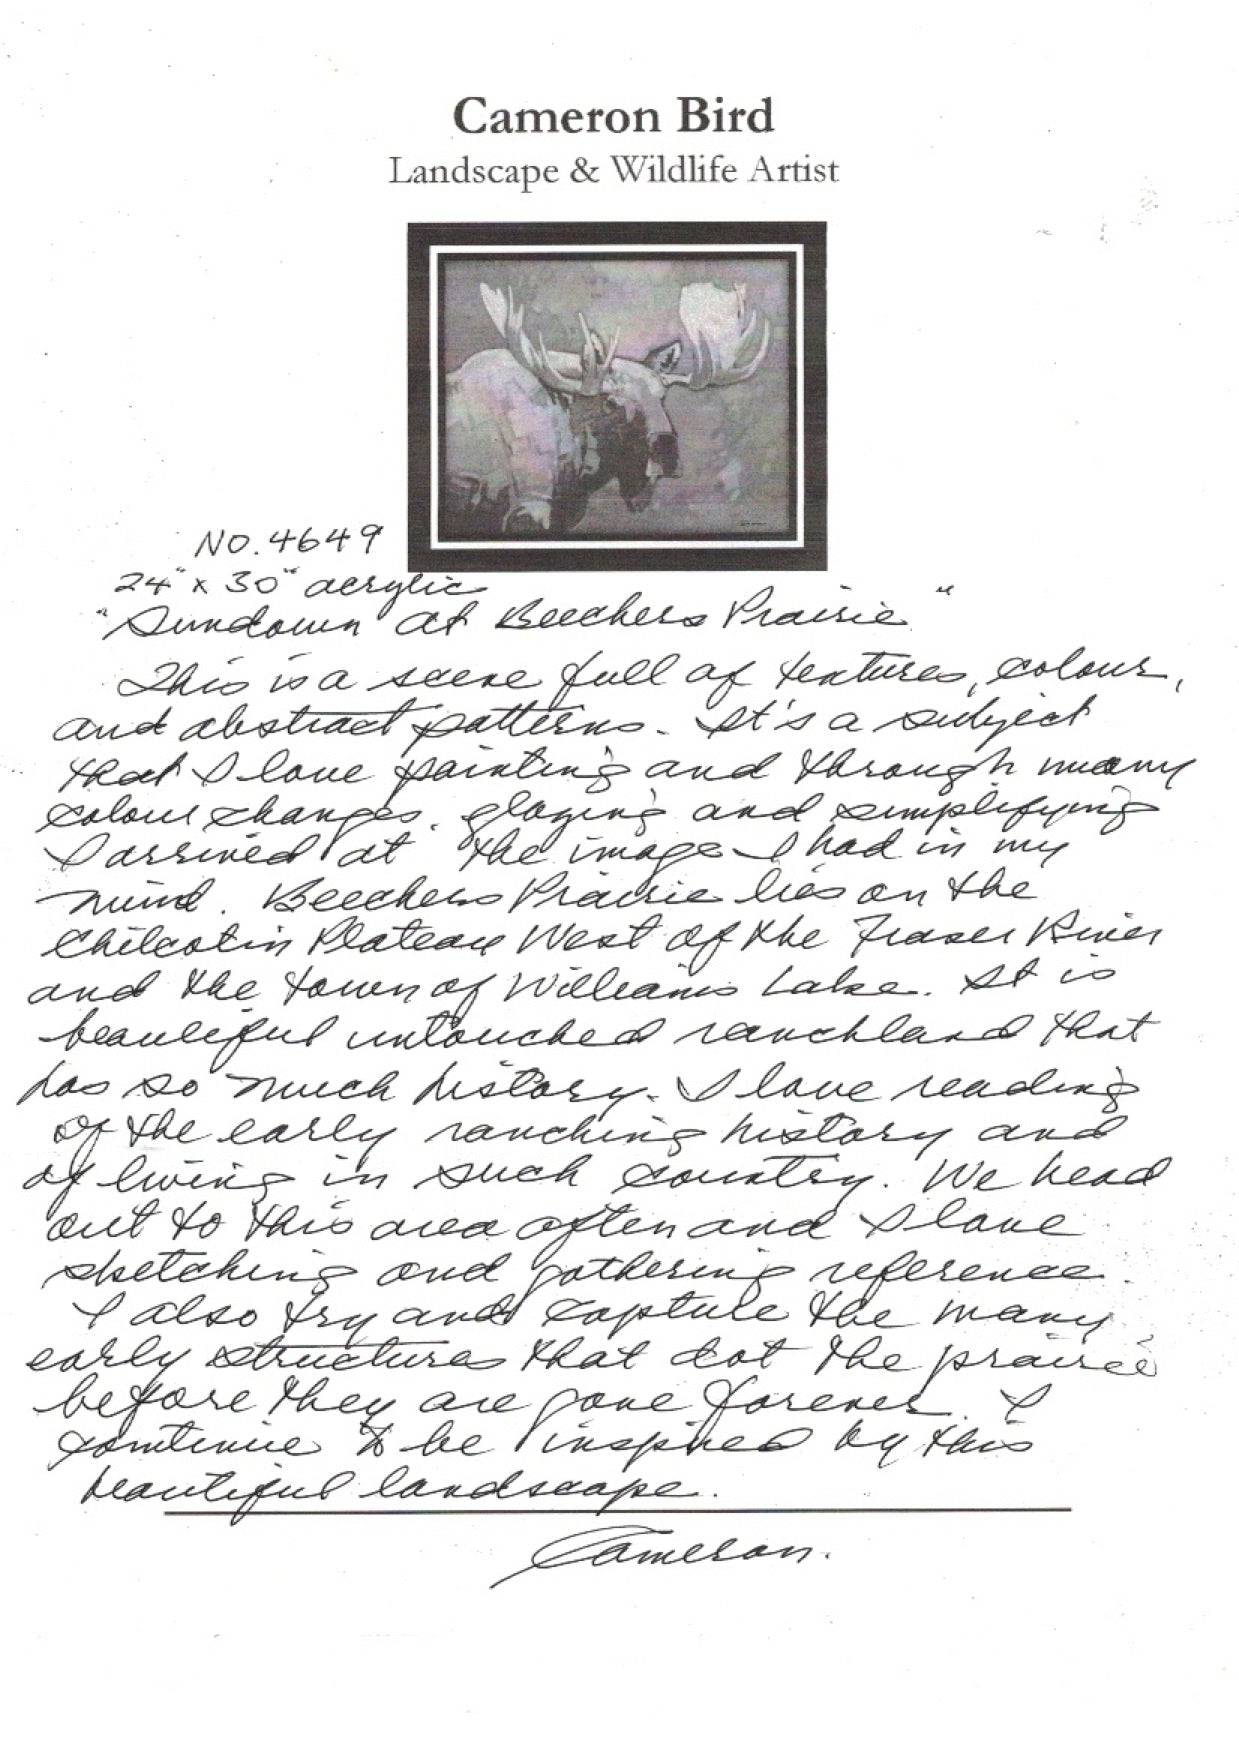 Cameron Bird
Landscape & Wildlife Artist
NO. 4649
24" x 30" acrylic
"Sundown at Beechers Prairie"
This is a scene full of textures, colour,
and abstract patterns. It's a subject
that I love painting and through many
colour changes, glazing and simplifying
I arrived at the image I had in my
mind. Beechers Prairie lies on the
Chilcotin Plateau West of the Fraser River
and the town of Williams Lake. It is
beautiful untouched ranchland that
has so much history. I love reading
of the early ranching history and
of living in such country. We head
out to this area often and I love
sketching and gathering reference.
I also try and capture the many
early structures that dot the prairie
before they are gone forever. I
continue to be inspired by this
beautiful landscape.
Cameron.